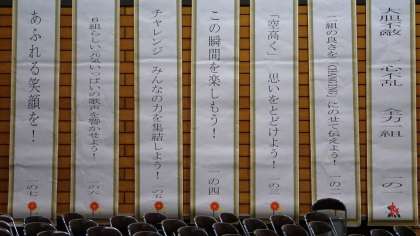 大胆不敵 一心不乱 全力一組 一の一
一組の良さを「CHANGING」にのせて伝えよう! 一の二
「空高く」 思いをとどけよう! 一の三
この瞬間を楽しもう! 一の四
チャレンジ みんなの力を集結しよう! 一の五
6組らしい元気いっぱいの歌声を響かせよう! 一の六
あふれる笑顔を! 一の七